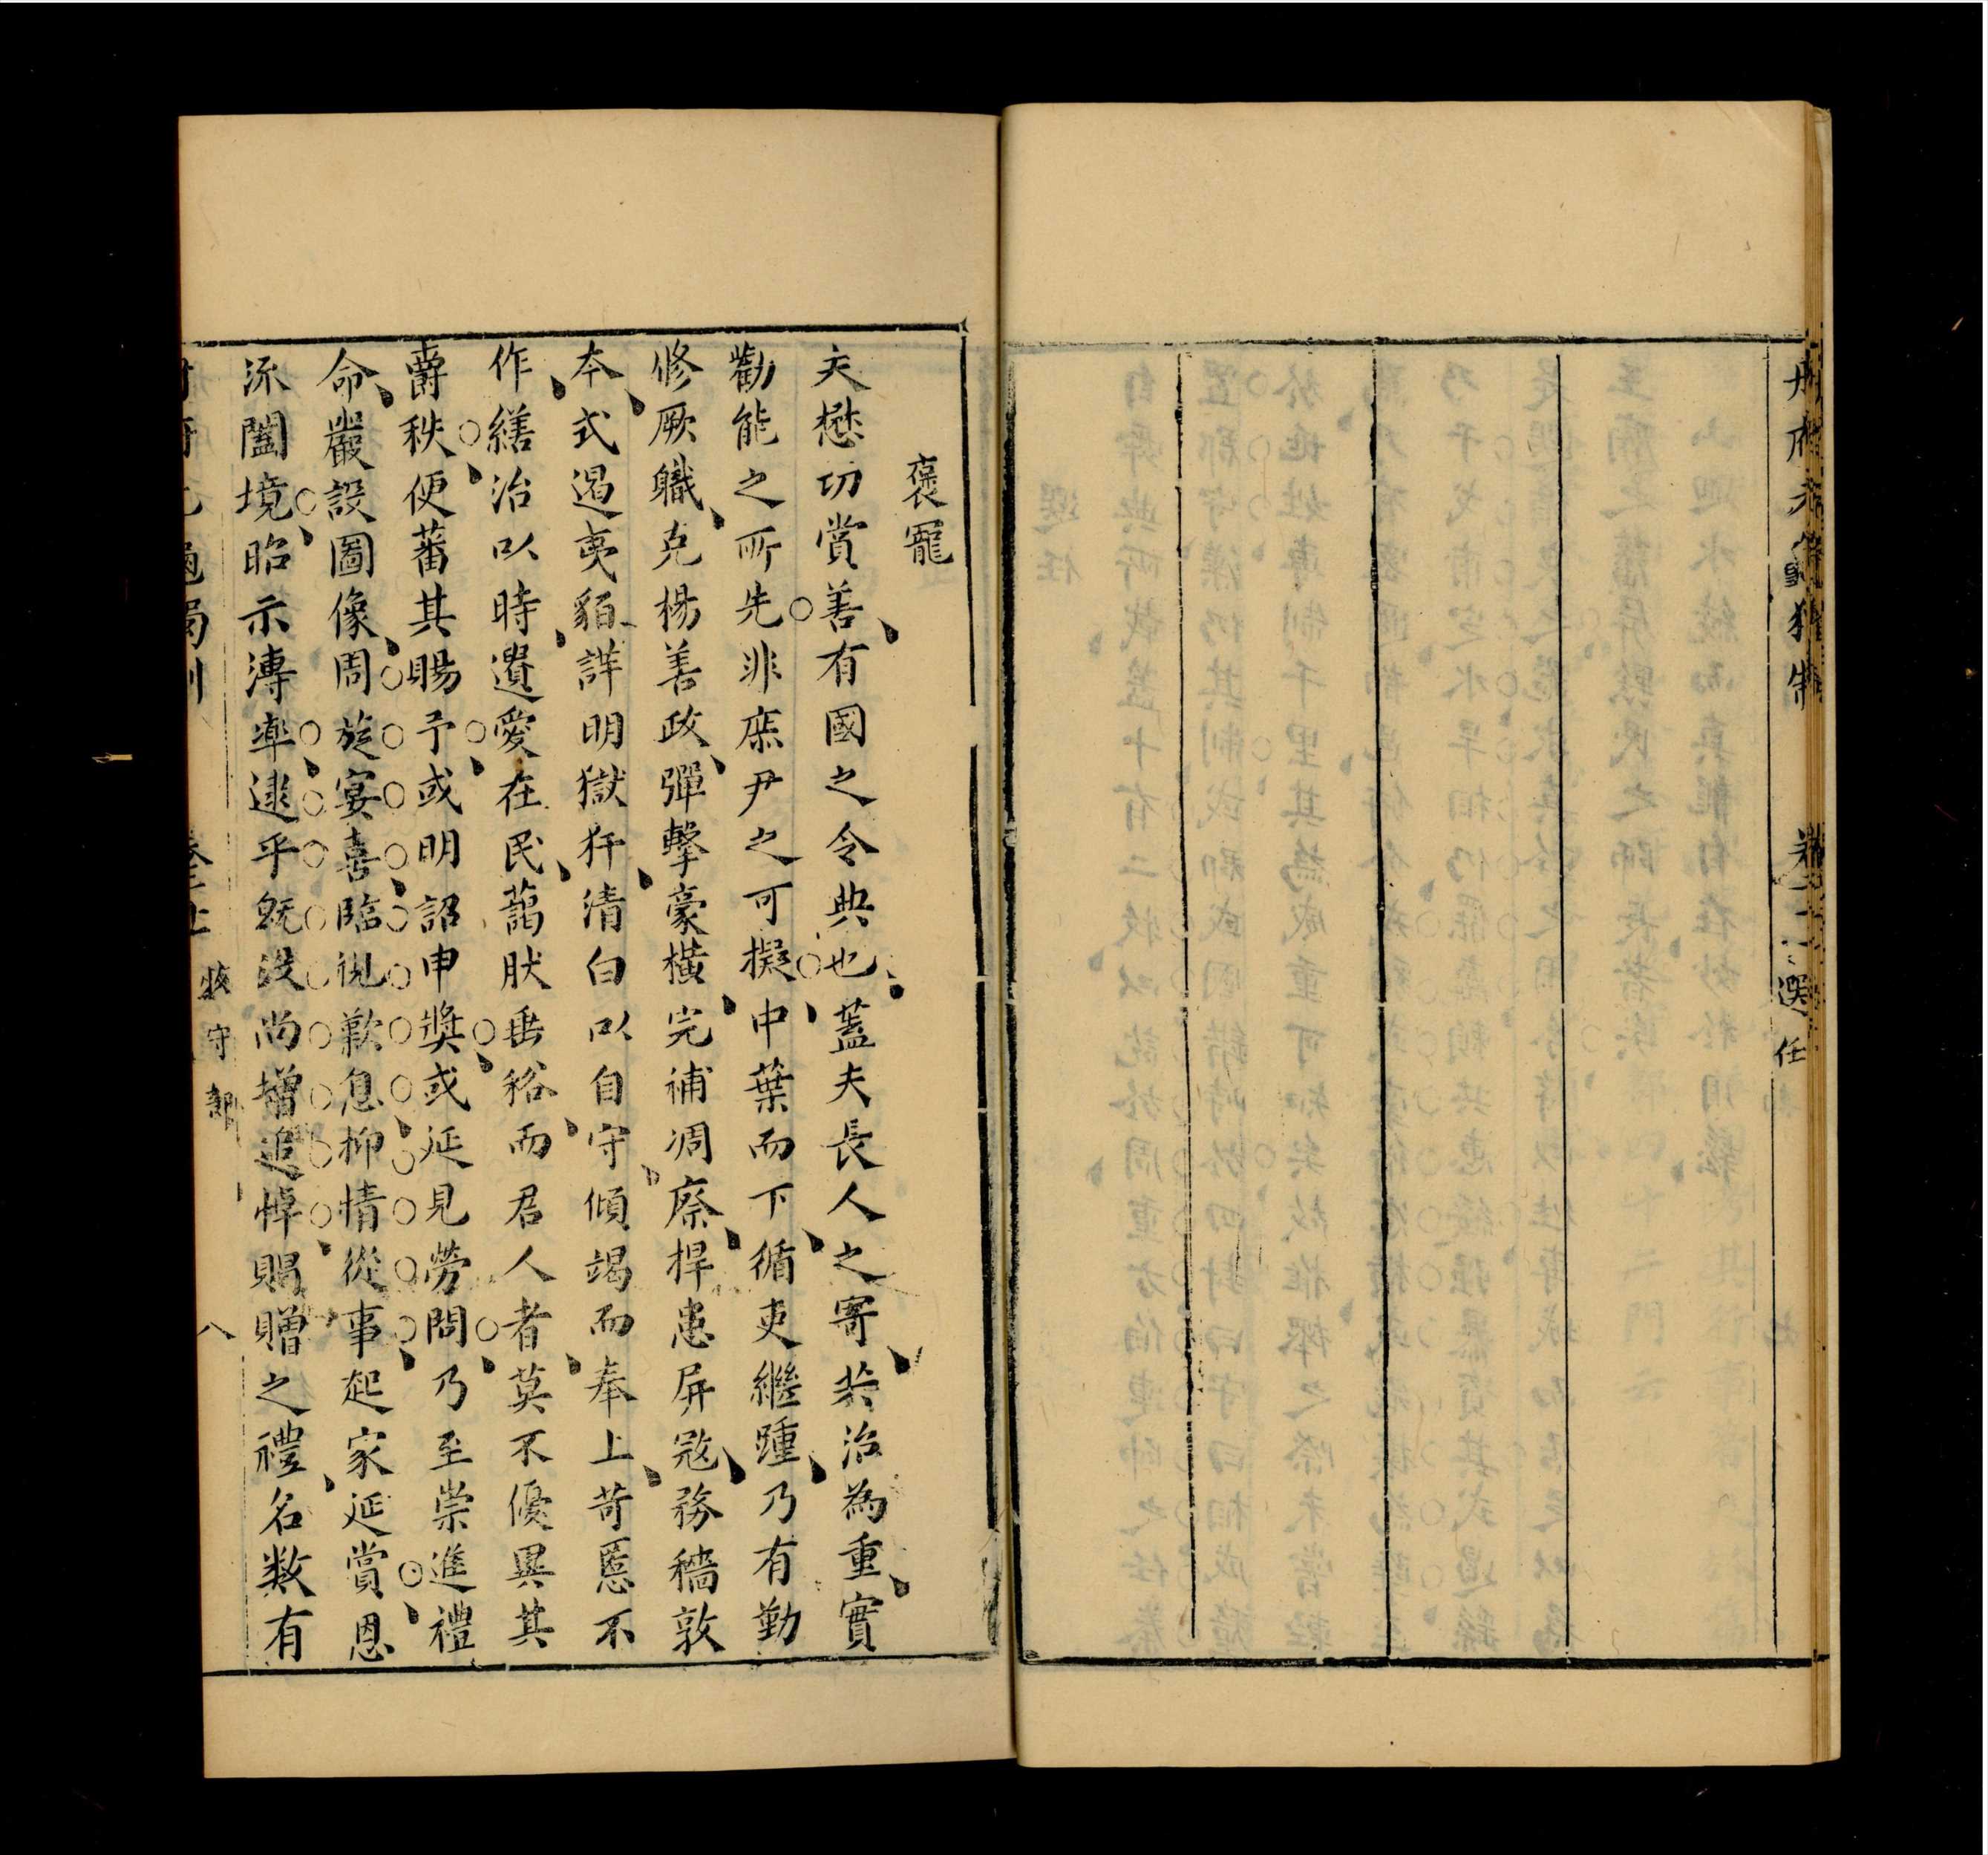 選任
褒寵
夫懋功賞善有國之令典也蓋夫長人之寄共治為重實
勸能之所先非庶尹之可擬中葉而下循吏繼踵乃有勤
修厥職克楊善政彈擊豪橫完補凋瘵捍患屏寇務穡敦
本式遏夷貊詳明獄犴清白以自守傾竭而奉上苛慝不
作繕治以時遺愛在民藹肰垂裕而君人者莫不優異其
爵秩便蕃其賜予或明詔申獎或延見勞問乃至崇進禮
命嚴設圖像周旋宴喜臨視歎息抑情從事起家延賞恩
流闔境昭示溥率逮乎旣沒尚增追悼賜贈之禮名数有
牧守部
八